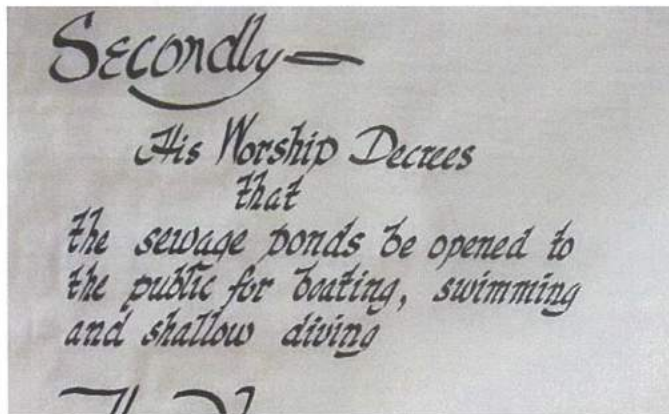 Secondly —
His Worship Decrees
that
the sewage ponds be opened to
the public for boating, swimming
and shallow diving